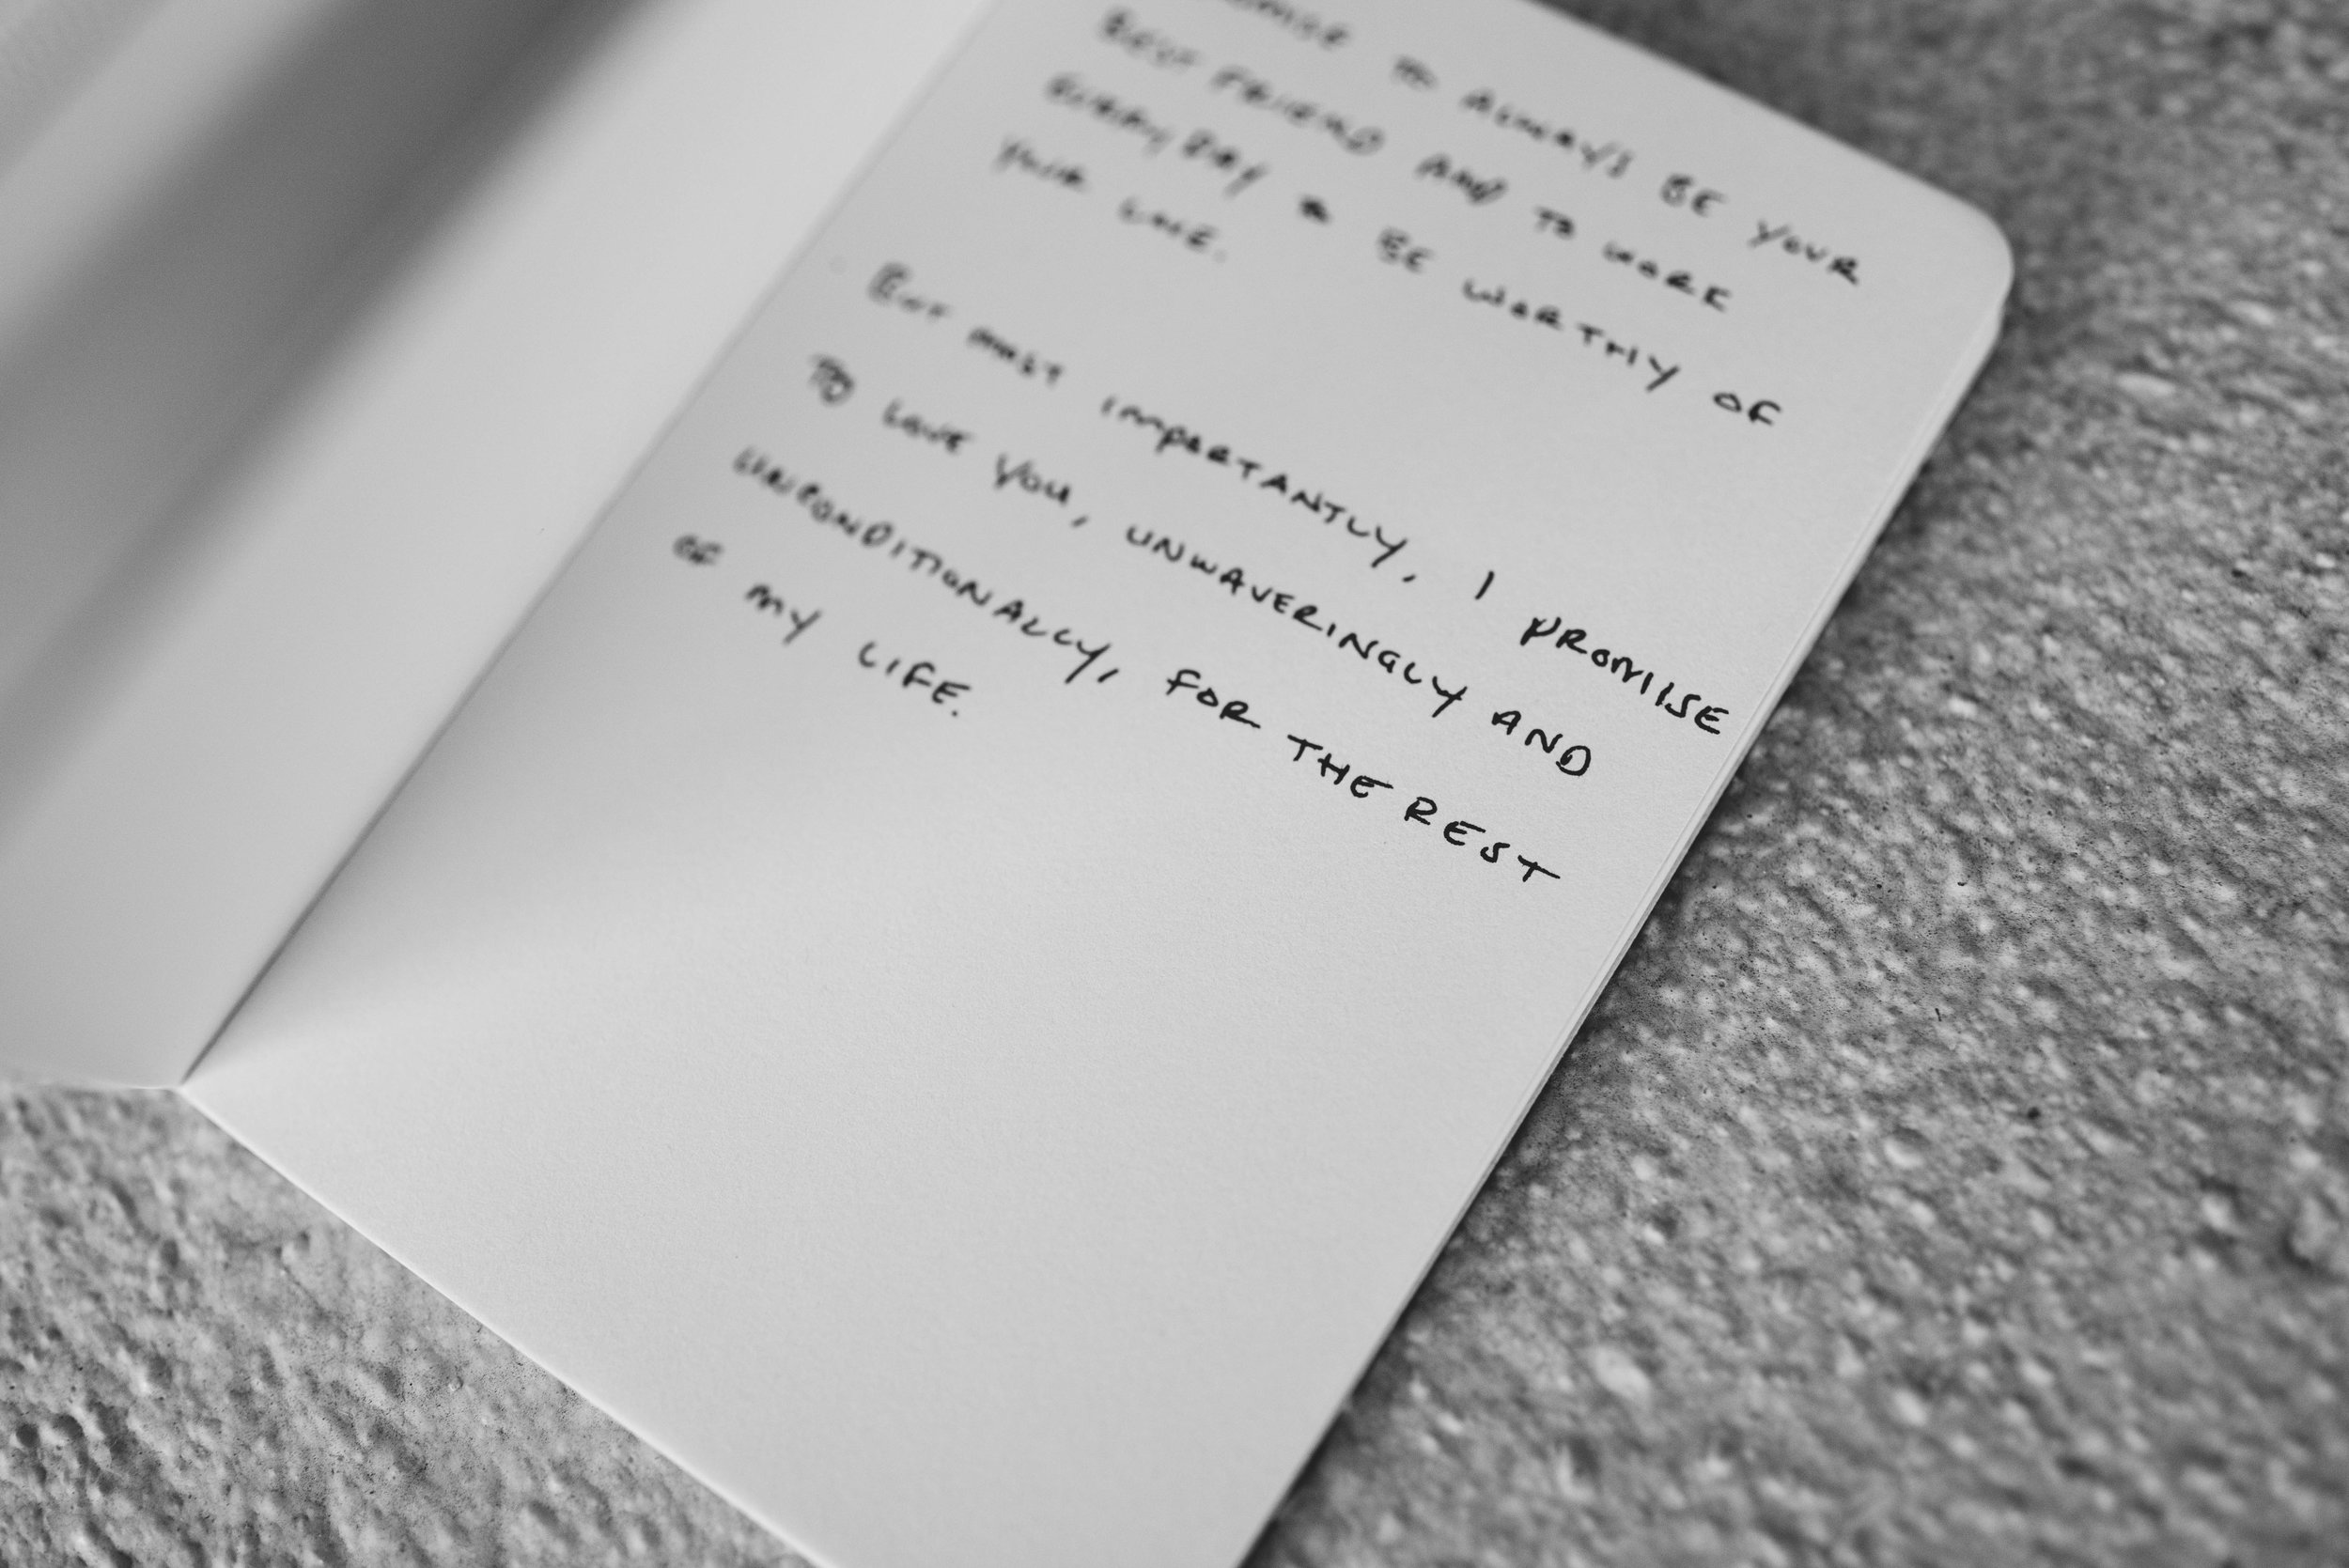 TO ALWAYS BE YOUR
BEST FRIEND AND TO WORK
EVERY DAY TO BE WORTHY OF
YOUR LOVE.
BUT MOST IMPORTANTLY, I PROMISE
TO LOVE YOU, UNWAVERINGLY AND
UNCONDITIONALLY, FOR THE REST
OF MY LIFE.